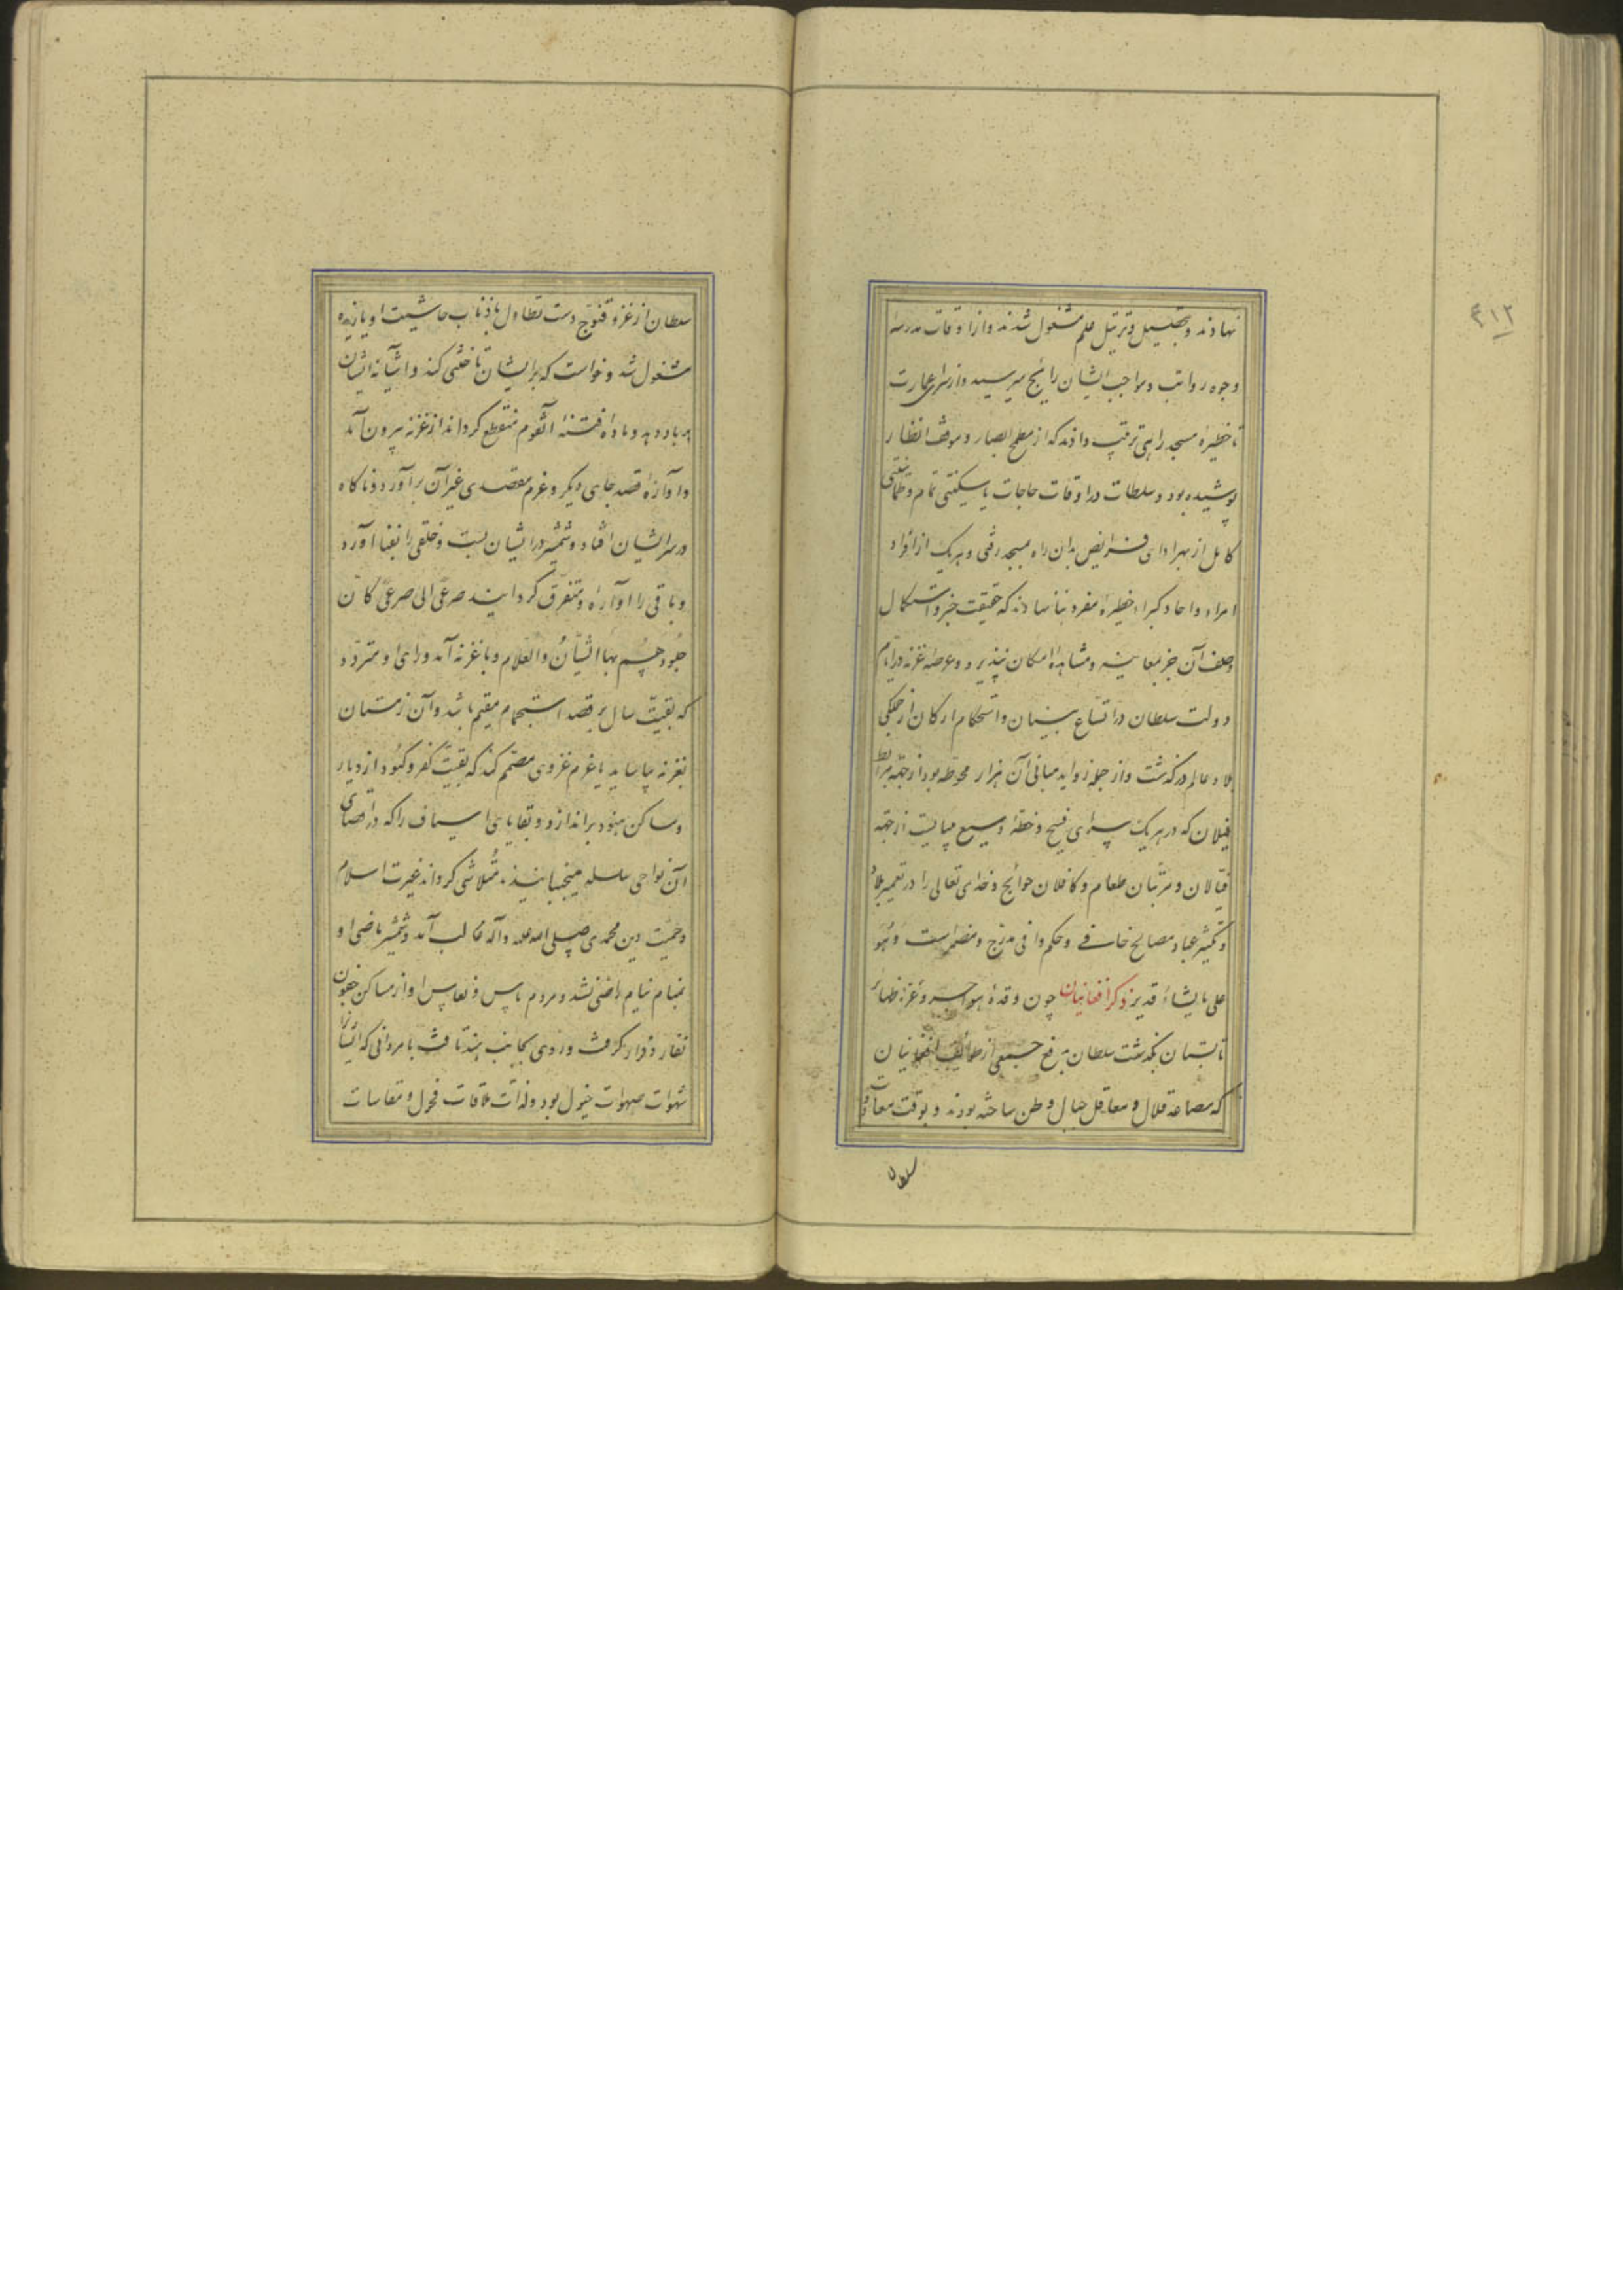 ۴۱۲
نهادند و بتحصیل و ترتیل علم مشغول شدند و از اوقات مدرسه
وجوه رواتب و مواجب ایشان رایج میرسید و از سرای عمارت
تا حظیرهٔ مسجد راهی ترتیب دادند که از مطمح ابصار و موقف انظار
پوشیده بود و سلطان در اوقات حاجات با سکینتی تمام و طمأنینتی
کامل از بهر ادای فرایض بدان راه بمسجد رفتی و هر یک از افراد
امراء و آحاد کبراء حظیرهٔ مفرد بنا نهادند که حقیقت خبر و اشکال
وصف آن جز بمعاینه و مشاهدهٔ امکان نپذیرد و عرصهٔ غزنه در ایام
دولت سلطان در اتساع بنیان و استحکام ارکان از جملگی
بلاد عالم درگذشت و از جمله زواید مبانی آن هزار محوطه بود از جهة مرابط
فیلان که در هر یک سرای فسیح و خطهٔ وسیع میبایست از جهة
فیالان و مرتبان طعام و کافلان حوائج و خدای تعالی را در تعمیر بلاد
و تکثیر عباد مصالح خافی و حکم وافی مدرج و مضمر است و هو
علی ما یشاء قدیر ذکر افغانیان چون وقدهٔ هواجر و غرهٔ ظهائر
تابستان بگذشت سلطان بدفع جمعی از طوایف افغانیان
که بمصاعد قلال و معاقل جبال وطن ساخته بودند و بوقت معاودت
سلطان
سلطان از غزو قنوج دست تطاول باذناب حاشیت او یازیده
مشغول شد و خواست که بر ایشان تاختی کند و آشیانه ایشان
بر باد دهد و مادهٔ فتنهٔ آنقوم منقطع گرداند از غزنه بیرون آمد
و آوازهٔ قصد جای دیگر و عزم مقصدی غیر آن برآورد و ناگاه
در سر ایشان افتاد و شمشیر در ایشان بست و خلقی را بفنا آورد
و باقی را آواره و متفرق گردانید صرعی الی صرعی کان
جلودهم بها الشیان و العلام و با غزنه آمد و رای او متردد
که بقیت سال بر قصد استجمام مقیم باشد و آن زمستان
بغزنه بیاساید یا عزم غزوی مصمم کند که بقیت کفر و کنود از دیار
و مساکن هنود براندازد و بقایای اسیاف را که در اقصای
آن نواحی سلسله میجنبانیذند متلاشی گرداند غیرت اسلام
و حمیت دین محمدی صلی الله علیه و آله غالب آمد و شمشیر ماضی او
بمقام نیام راضی نشد و مردم باس و نعاس او از مساکن جفون
نفار و فرار گرفت و روی بجانب هند تافت با مردانی که ایشانرا
شهوات صهوات خیول بود و لذات ملاقات فحول و مقاسات